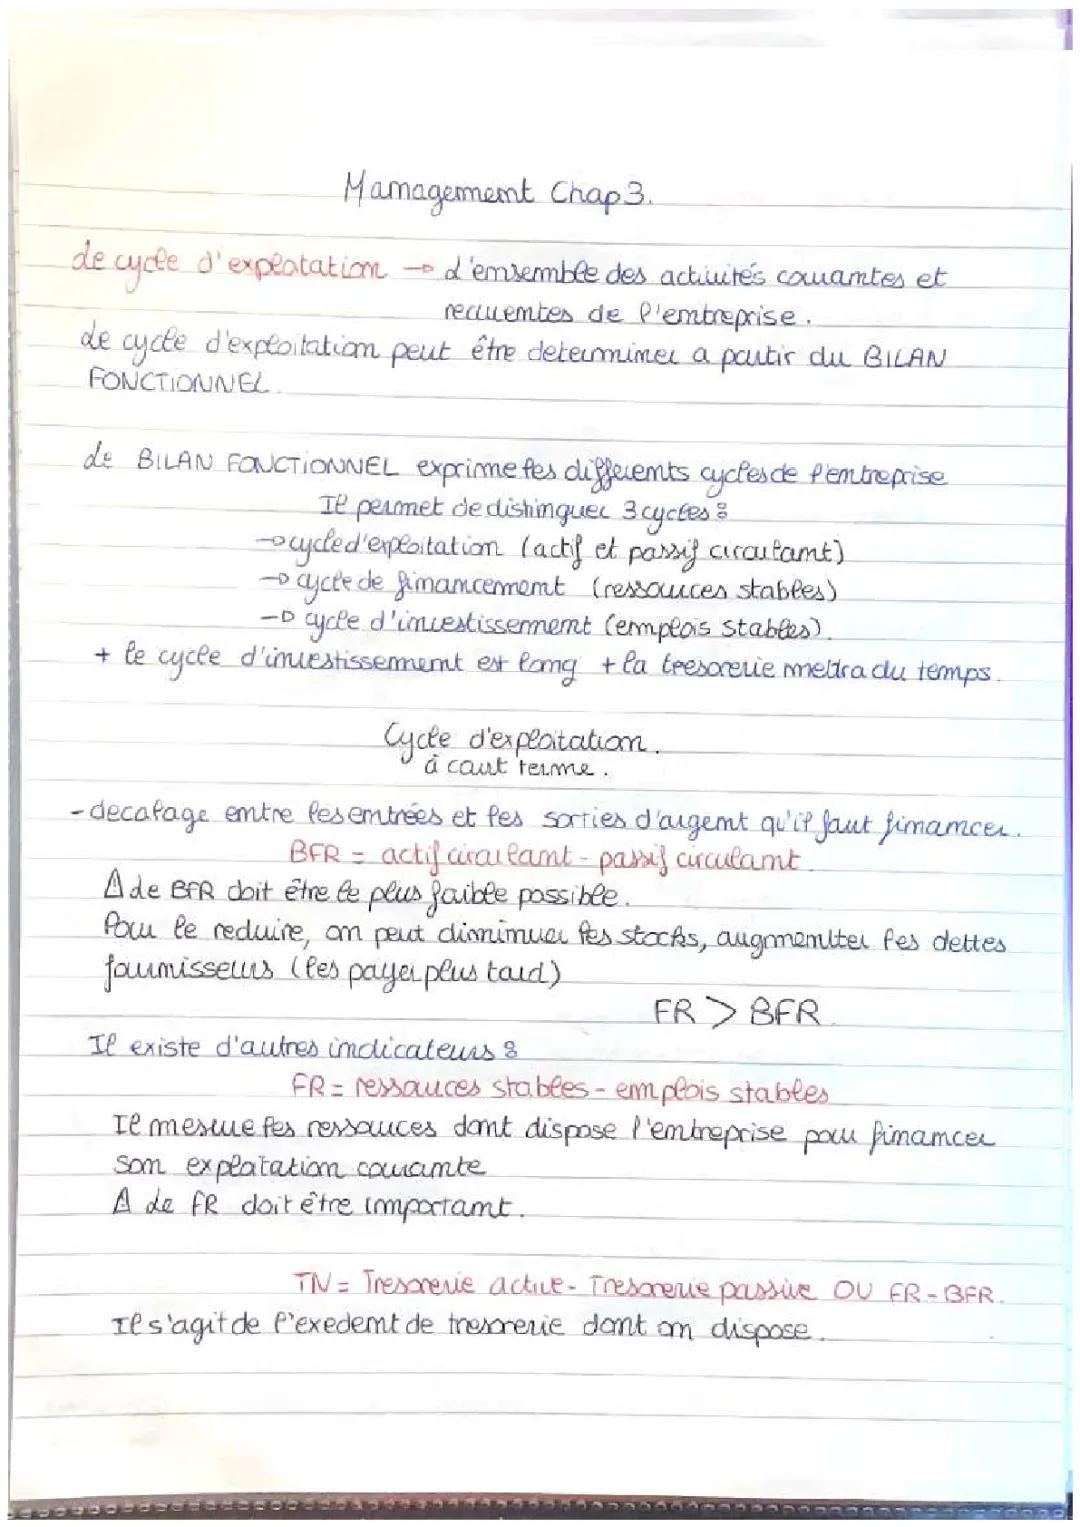 Management Chap 3.
Le cycle d'exploitation → L'ensemble des activités courantes et
recurrentes de l'entreprise.
Le cycle d'exploitation peut être determiner a partir du BILAN
FONCTIONNEL.
Le BILAN FONCTIONNEL exprime les differents cycles de l'entreprise
Il permet de distinguer 3 cycles :
→ cycle d'exploitation (actif et passif circulant)
→ cycle de financement (ressources stables)
→ cycle d'investissement (emplois stables).
+ le cycle d'investissement est long + la tresorerie mettra du temps.
Cycle d'exploitation.
à court terme.
- decalage entre les entrées et les sorties d'argent qu'il faut financer.
BFR = actif circulant - passif circulant.
⚠ Le BFR doit être le plus faible possible.
Pour le reduire, on peut diminuer les stocks, augmenter les dettes
fournisseurs (les payer plus tard)
FR > BFR.
Il existe d'autres indicateurs :
FR = ressources stables - emplois stables
Il mesure les ressources dont dispose l'entreprise pour financer
son exploitation courante
⚠ Le FR doit être important.
TN = Tresorerie active - Tresorerie passive OU FR - BFR.
Il s'agit de l'exedent de tresorerie dont on dispose.